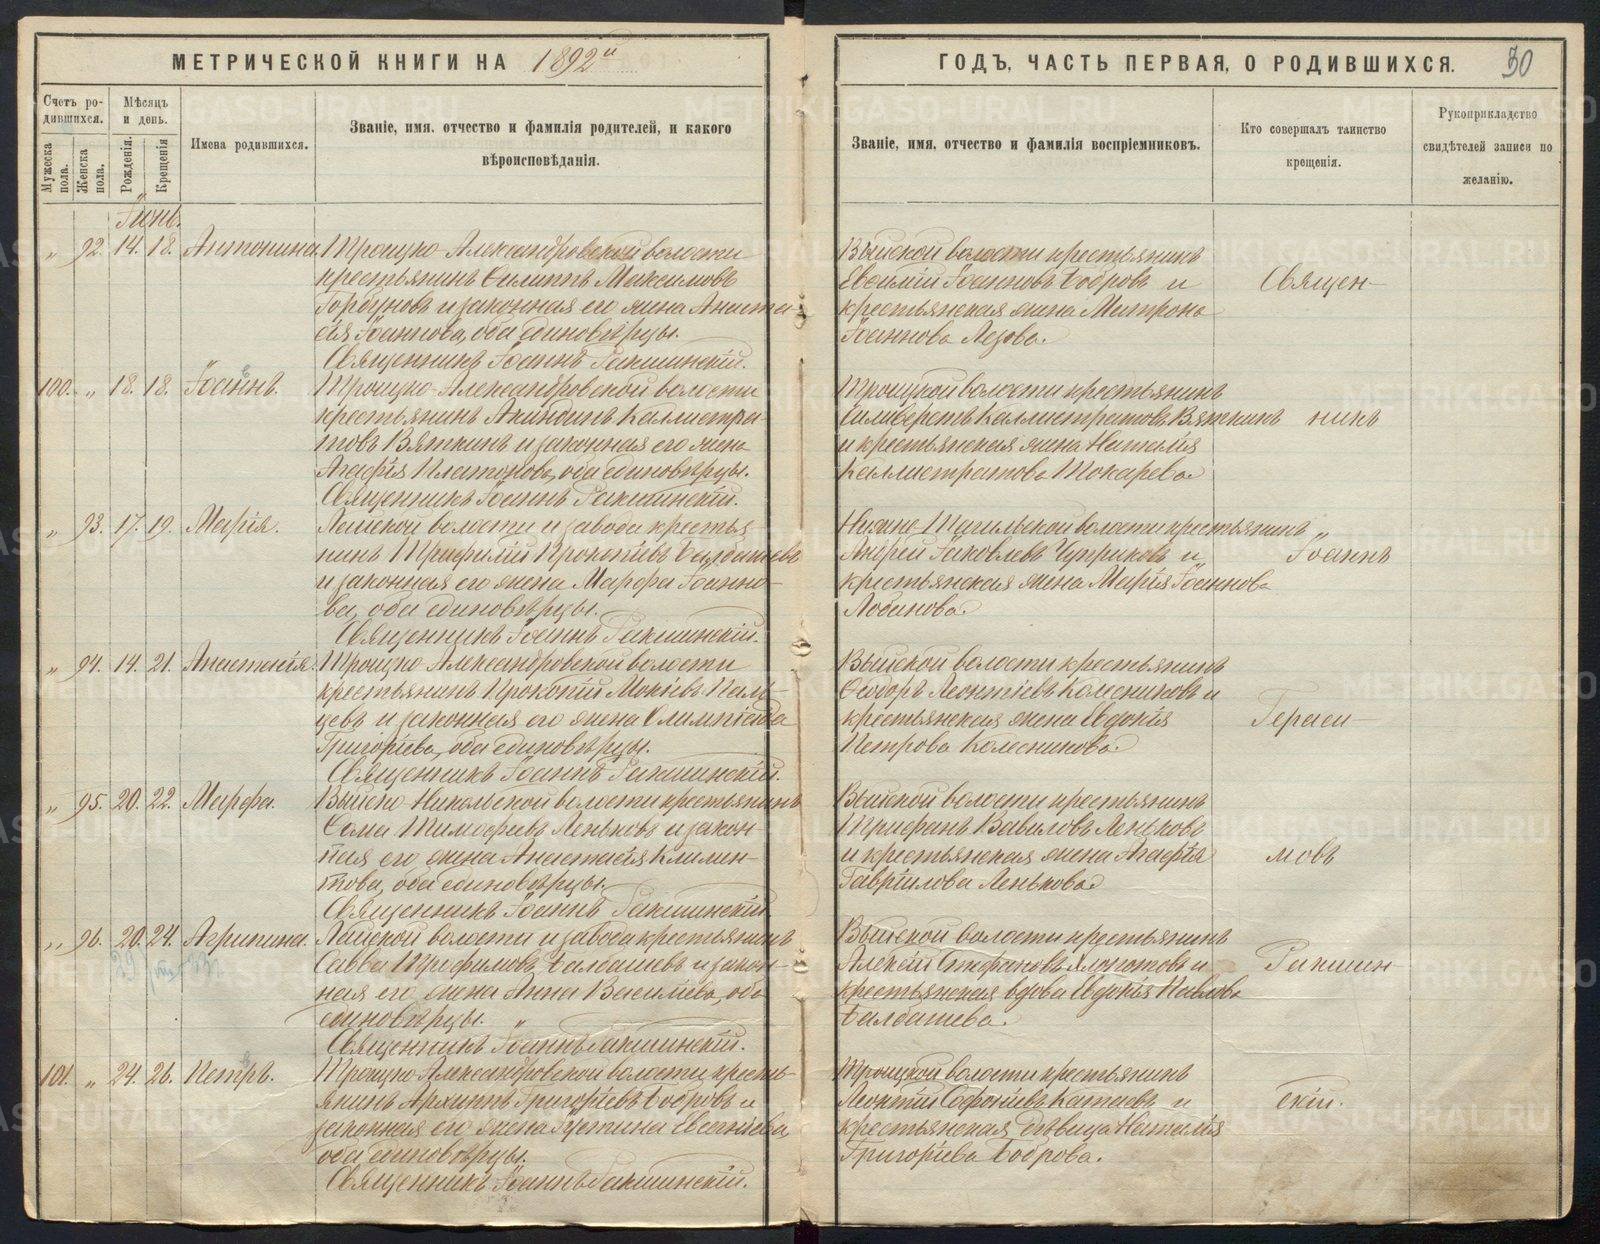 МЕТРИЧЕСКОЙ КНИГИ НА 1892й
ГОДЪ, ЧАСТЬ ПЕРВАЯ, О РОДИВШИХСЯ. 30
Счетъ ро-
дившихся.
Мужеска пола.
Женска пола.
Мѣсяцъ
и день.
Рожденія.
Крещенія
Имена родившихся.
Званіе, имя, отчество и фамилія родителей, и какого
вѣроисповѣданія.
Званіе, имя, отчество и фамилія воспріемниковъ.
Кто совершалъ таинство
крещенія.
Рукоприкладство
свидѣтелей записи по
желанію.
Іюнь.
„ 92. 14. 18. Антонина. Троицко-Александровской волости
крестьянинъ Филиппъ Максимовъ
Горбуновъ и законная его жена Анаста-
сія Іоаннова, оба единовѣрцы.
Священникъ Іоаннъ Ракшинскій.
Выйской волости крестьянинъ
Евѳимій Іоанновъ Бобровъ и
крестьянская жена Матрона
Іоаннова Лезова.
Священ-
100. „ 18. 18. Іоаннъ. Троицко-Александровской волости
крестьянинъ Акиндинъ Каллистра-
товъ Вяткинъ и законная его жена
Агафія Платонова, оба единовѣрцы.
Священникъ Іоаннъ Ракшинскій.
Троицкой волости крестьянинъ
Силиверстъ Каллистратовъ Вяткинъ
и крестьянская жена Наталія
Каллистратова Токарева
никъ
„ 93. 17. 19. Марія. Лайской волости и завода крестья-
нинъ Трифилій Прокопіевъ Балбашевъ
и законная его жена Марфа Іоанно-
ва, оба единовѣрцы.
Священникъ Іоаннъ Ракшинскій.
Нижне-Тагильской волости крестьянинъ
Андрей Іаковлевъ Чуприковъ и
крестьянская жена Марія Іоаннова
Лобанова.
Іоаннъ
„ 94. 14. 21. Анастасія. Троицко-Александровской волости
крестьянинъ Прокопій Мокіевъ Паль-
цевъ и законная его жена Олимпіада
Григоріева, оба единовѣрцы.
Священникъ Іоаннъ Ракшинскій.
Выйской волости крестьянинъ
Ѳеодоръ Леонтіевъ Колесниковъ и
крестьянская жена Евдокія
Петрова Колесникова.
Гераси-
„ 95. 20. 22. Марфа. Выйско-Никольской волости крестьянинъ
Ѳома Тимоѳеевъ Леньковъ и закон-
ная его жена Анастасія Климен-
това, оба единовѣрцы.
Священникъ Іоаннъ Ракшинскій.
Выйской волости крестьянинъ
Трифанъ Вавиловъ Леньковъ
и крестьянская жена Агафія
Гавріилова Ленькова.
мовъ
„ 96. 20. 24. Агрипина. Лайской волости и завода крестьянинъ
Савва Трефиловъ Балбашевъ и закон-
ная его жена Анна Василіева, оба
единовѣрцы.
Священникъ Іоаннъ Ракшинскій.
Выйской волости крестьянинъ
Алексій Стефановъ Хлопотовъ и
крестьянская вдова Евдокія Павлова
Балбашева.
Ракшин-
101. „ 24. 26. Петръ. Троицко-Александровской волости кресть-
янинъ Архиппъ Григоріевъ Бобровъ и
законная его жена Іустина Евгеніева,
оба единовѣрцы.
Священникъ Іоаннъ Ракшинскій.
Троицкой волости крестьянинъ
Леонтій Софоніевъ Катаевъ и
крестьянская дѣвица Наталія
Григоріева Боброва.
скій.
METRIKI.GASO-URAL.RU